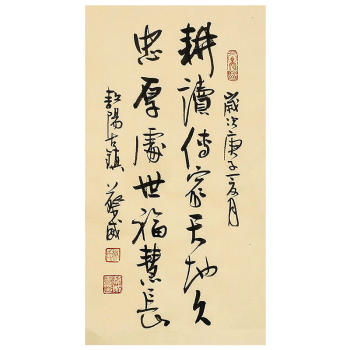 歲次庚子夏月
耕讀傳家天地久
忠厚處世福慧長
陽古鎮